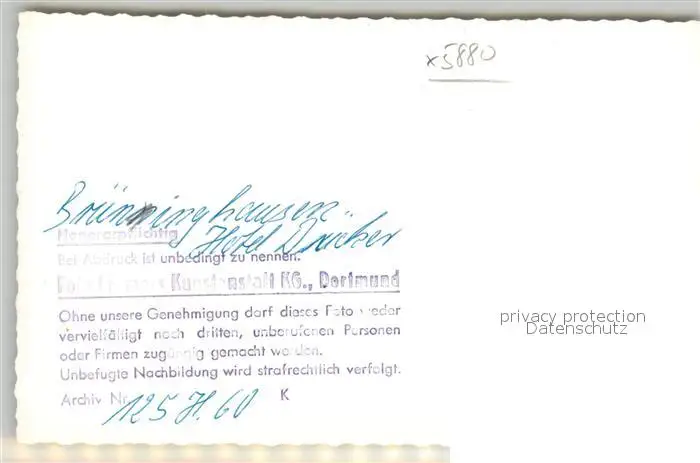 x5880
Brünninghausen
Honorarpflichtig
Hotel Drüker
Bei Abdruck ist unbedingt zu nennen:
Kunstanstalt KG., Dortmund
Ohne unsere Genehmigung darf dieses Foto weder
vervielfältigt noch dritten, unberufenen Personen
oder Firmen zugängig gemacht werden.
Unbefugte Nachbildung wird strafrechtlich verfolgt.
Archiv Nr. 125 H. 60 K
privacy protection
Datenschutz